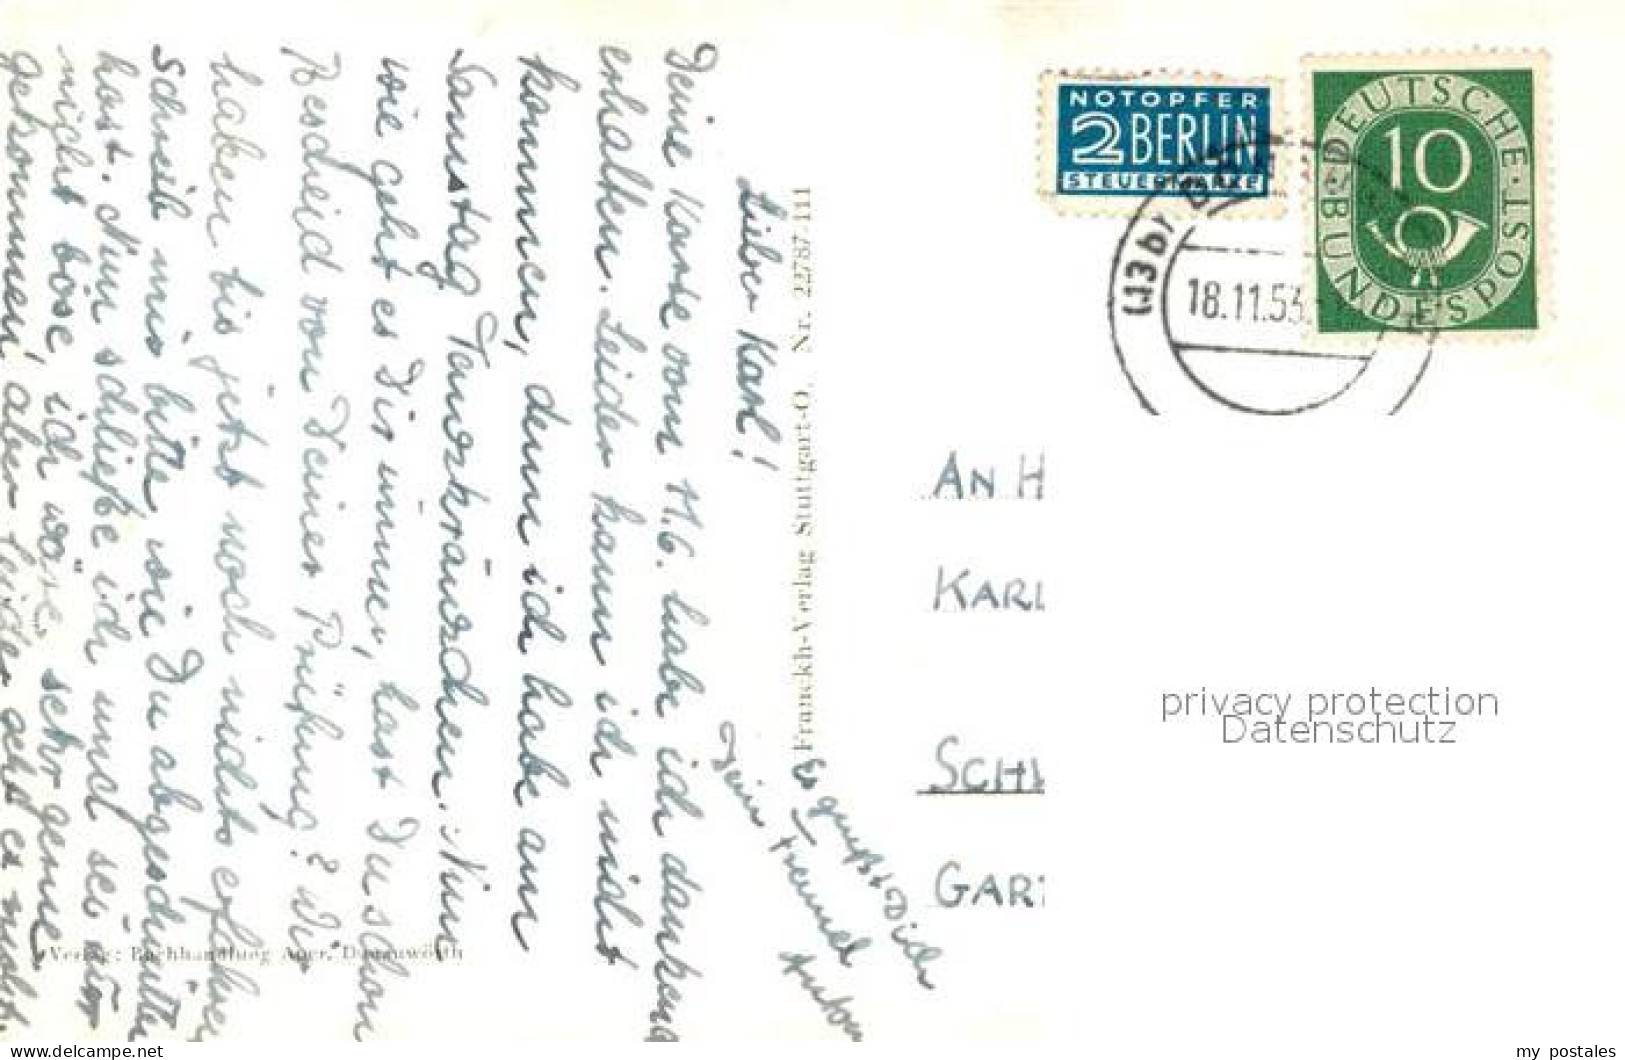 Lieber Karl!
Deine Karte vom 11.6. habe ich dankend
erhalten. Leider kann ich nicht
kommen, denn ich habe am
Samstag Tanzkränzchen. Nun
wie geht es Dir immer, hast Du schon
Bescheid von Deiner Prüfung? Wir
haben bis jetzt noch nichts erfahren
Schreib mir bitte, wie Du abgeschnitten
hast. Nun schließe ich und sei mir
nicht böse, ich wäre sehr gerne
gekommen, aber leider geht es nicht.
Es grüßt Dich
Dein Freund
Anton
Franckh-Verlag Stuttgart-O. Nr. 22787-111
Verlag: Buchhandlung Auer, Donauwörth
NOTOPFER
2 BERLIN
STEUERMARKE
DEUTSCHE BUNDESPOST
10
(13b)
18.11.53
AN H
KARL
SCHW
GART
privacy protection
Datenschutz
my postales
www.delcampe.net